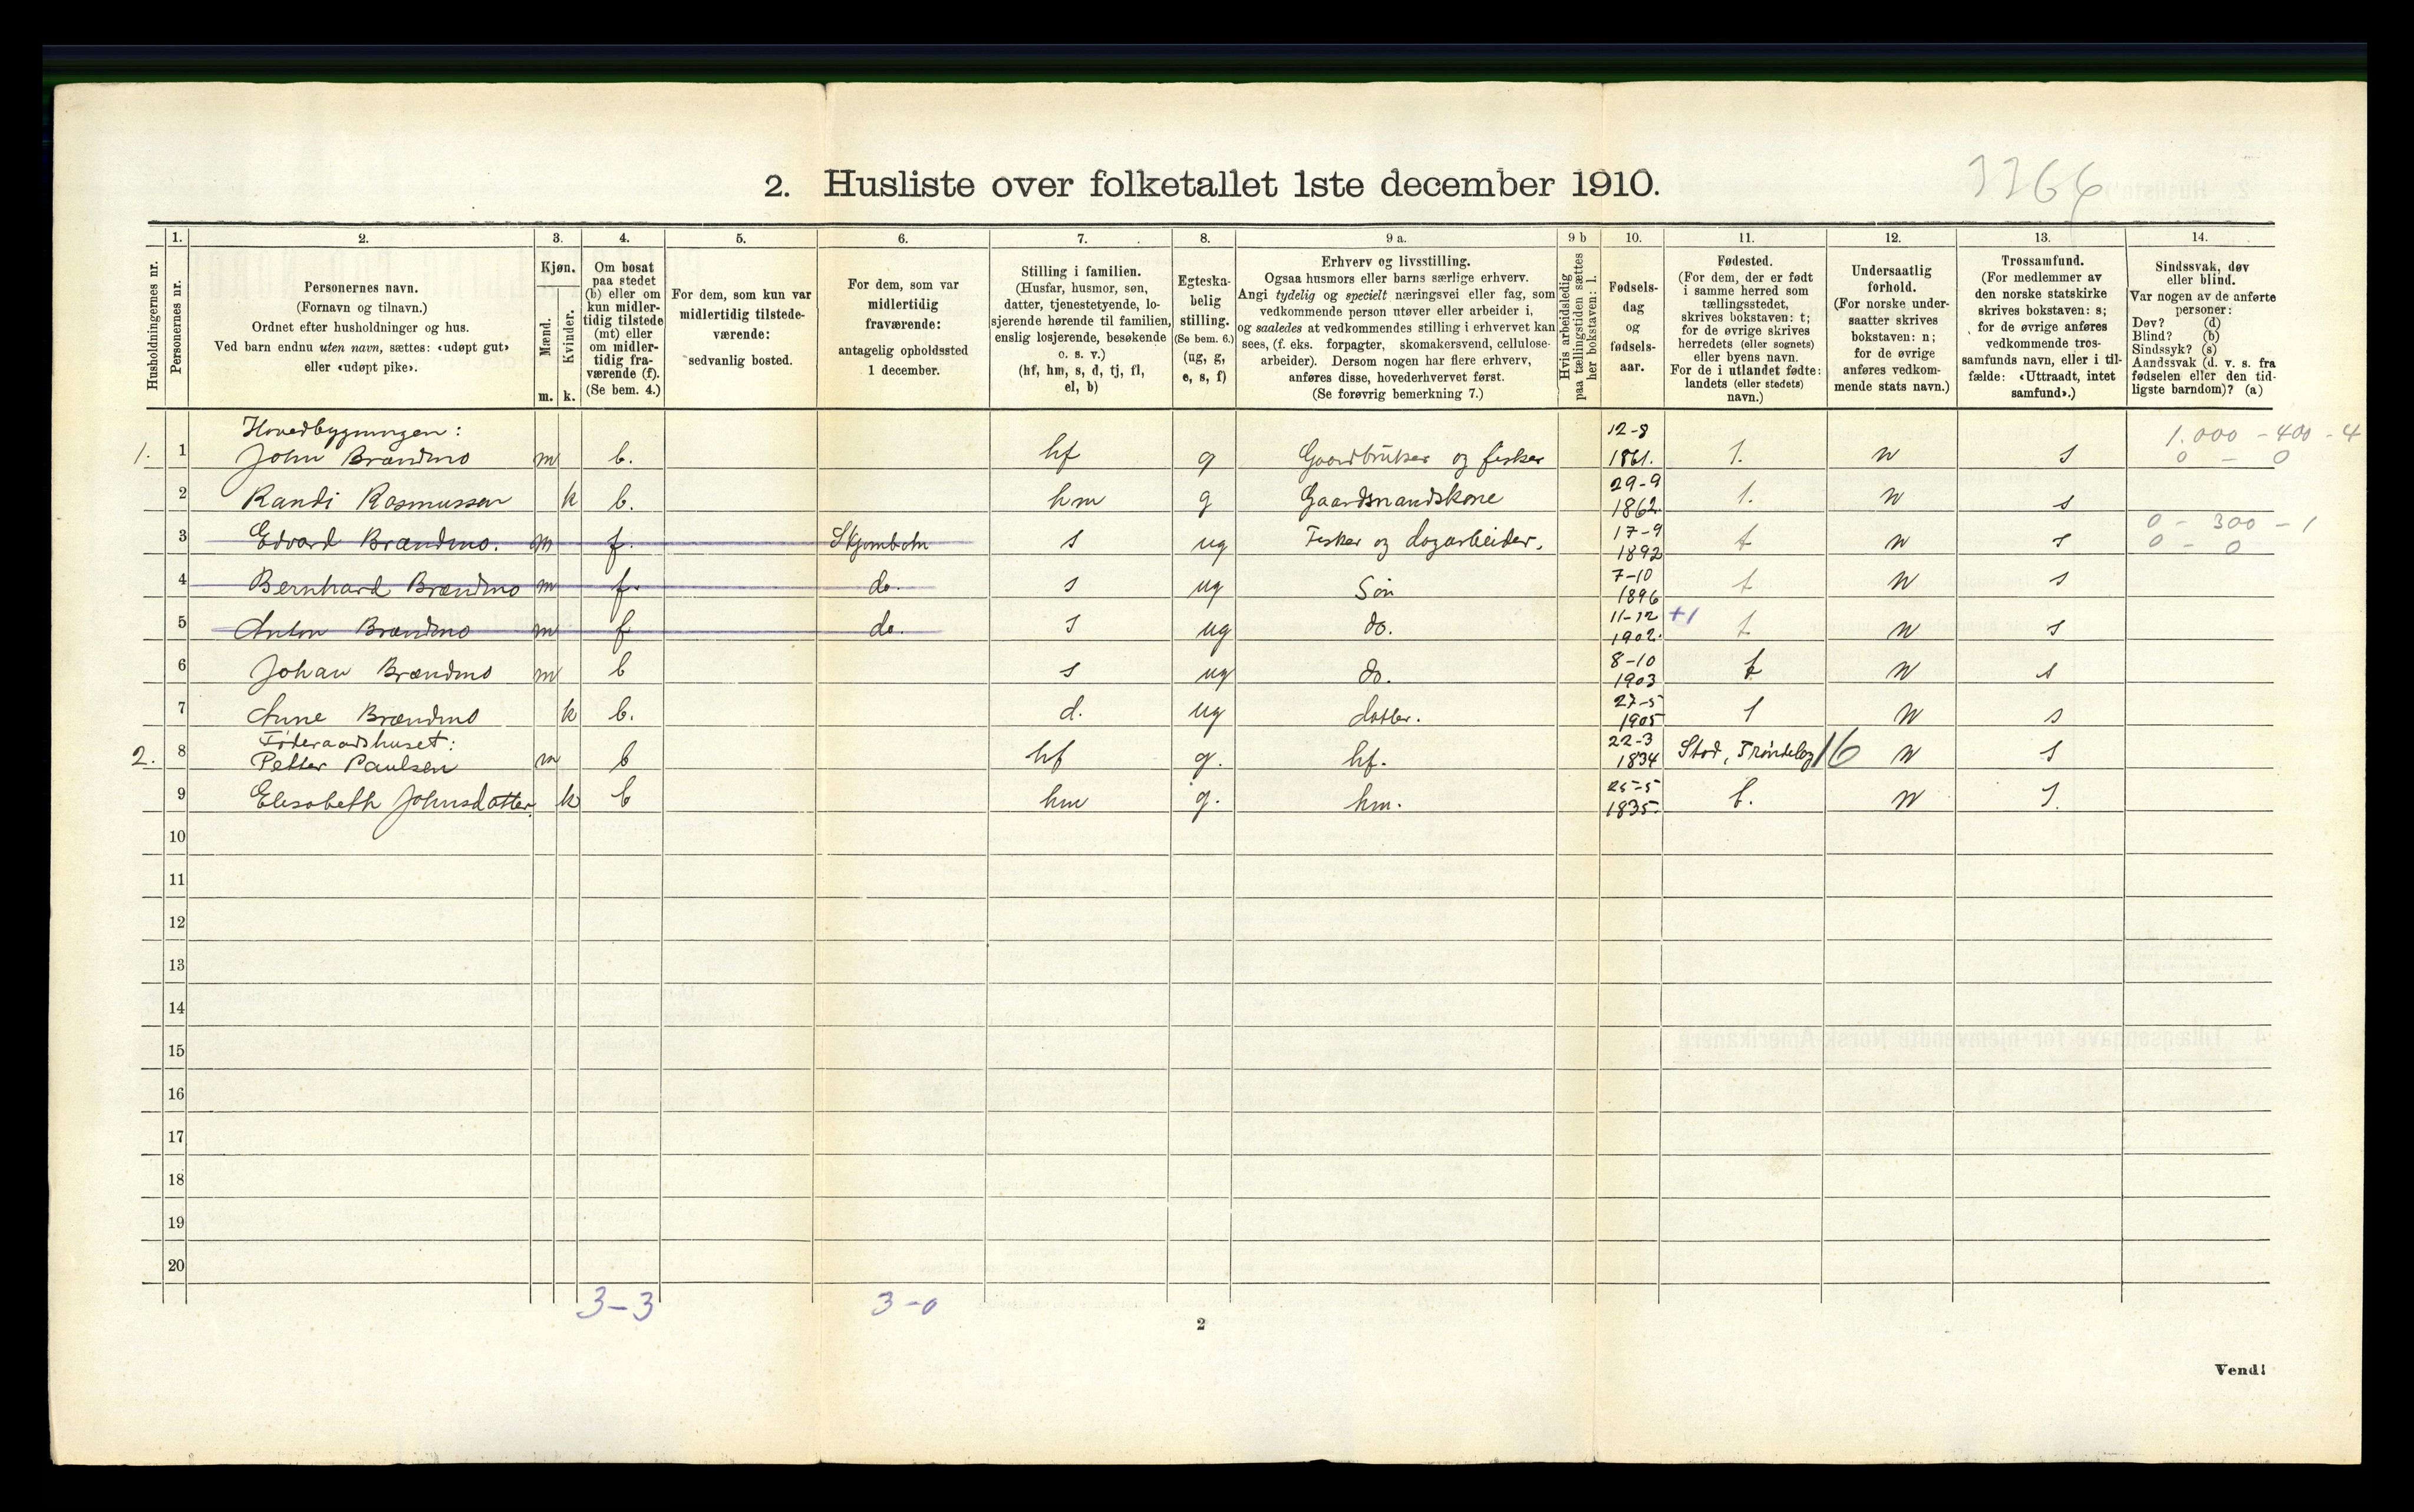 2. Husliste over folketallet 1ste december 1910.
3366
Husholdningernes nr.
1.
Personernes nr.
2.
Personernes navn.
(Fornavn og tilnavn.)
Ordnet efter husholdninger og hus.
Ved barn endnu uten navn, sættes: «udøpt gut»
eller «udøpt pike».
3.
Kjøn.
Mænd.
Kvinder.
m. k.
4.
Om bosat
paa stedet
(b) eller om
kun midler-
tidig tilstede
(mt) eller
om midler-
tidig fra-
værende (f).
(Se bem. 4.)
5.
For dem, som kun var
midlertidig tilstede-
værende:
sedvanlig bosted.
6.
For dem, som var
midlertidig
fraværende:
antagelig opholdssted
1 december.
7.
Stilling i familien.
(Husfar, husmor, søn,
datter, tjenestetyende, lo-
sjerende hørende til familien,
enslig losjerende, besøkende
o. s. v.)
(hf, hm, s, d, tj, fl,
el, b)
8.
Egteska-
belig
stilling.
(Se bem. 6.)
(ug, g,
e, s, f)
9 a.
Erhverv og livsstilling.
Ogsaa husmors eller barns særlige erhverv.
Angi tydelig og specielt næringsvei eller fag, som
vedkommende person utøver eller arbeider i,
og saaledes at vedkommendes stilling i erhvervet kan
sees, (f. eks. forpagter, skomakersvend, cellulose-
arbeider). Dersom nogen har flere erhverv,
anføres disse, hovederhvervet først.
(Se forøvrig bemerkning 7.)
9 b
Hvis arbeidsledig
paa tællingstiden sættes
her bokstaven: l.
10.
Fødsels-
dag
og
fødsels-
aar.
11.
Fødested.
(For dem, der er født
i samme herred som
tællingsstedet,
skrives bokstaven: t;
for de øvrige skrives
herredets (eller sognets)
eller byens navn.
For de i utlandet fødte:
landets (eller stedets)
navn.)
12.
Undersaatlig
forhold.
(For norske under-
saatter skrives
bokstaven: n;
for de øvrige
anføres vedkom-
mende stats navn.)
13.
Trossamfund.
(For medlemmer av
den norske statskirke
skrives bokstaven: s;
for de øvrige anføres
vedkommende tros-
samfunds navn, eller i til-
fælde: «Uttraadt, intet
samfund».)
14.
Sindssvak, døv
eller blind.
Var nogen av de anførte
personer:
Døv? (d)
Blind? (b)
Sindssyk? (s)
Aandssvak (d. v. s. fra
fødselen eller den tid-
ligste barndom)? (a)
Hovedbygningen: 12-8 1.000 - 400 - 4
1. 1 John Brændmo m b. hf g Gaardbruker og fisker 1861. t. n s 0 - 0
2 Randi Rasmussen k b. hm g Gaardmandskone 29-9 1862 t. n s
3 Edvard Brændmo. m f. Skjombotn s ug Fisker og dagarbeider. 17-9 1892 t n s 0 - 300 - 1 0 - 0
4 Bernhard Brændmo m f. do. s ug Søn 7-10 1896 t n s
5 Anton Brændmo m f do. s ug do. 11-12 1902. +1 t n s
6 Johan Brændmo m b s ug do. 8-10 1903 t n s
7 Anne Brændmo k b. d. ug datter. 27-5 1905 t n s
Føderaadshuset:
2. 8 Petter Paulsen m b hf g. hf. 22-3 1834 Stod, Trøndelag 16 n s
9 Elisabeth Johnsdatter. k b hm g. hm. 25-5 1835. t. n s.
10
11
12
13
14
15
16
17
18
19
20
3-3 3-0
2
Vend!